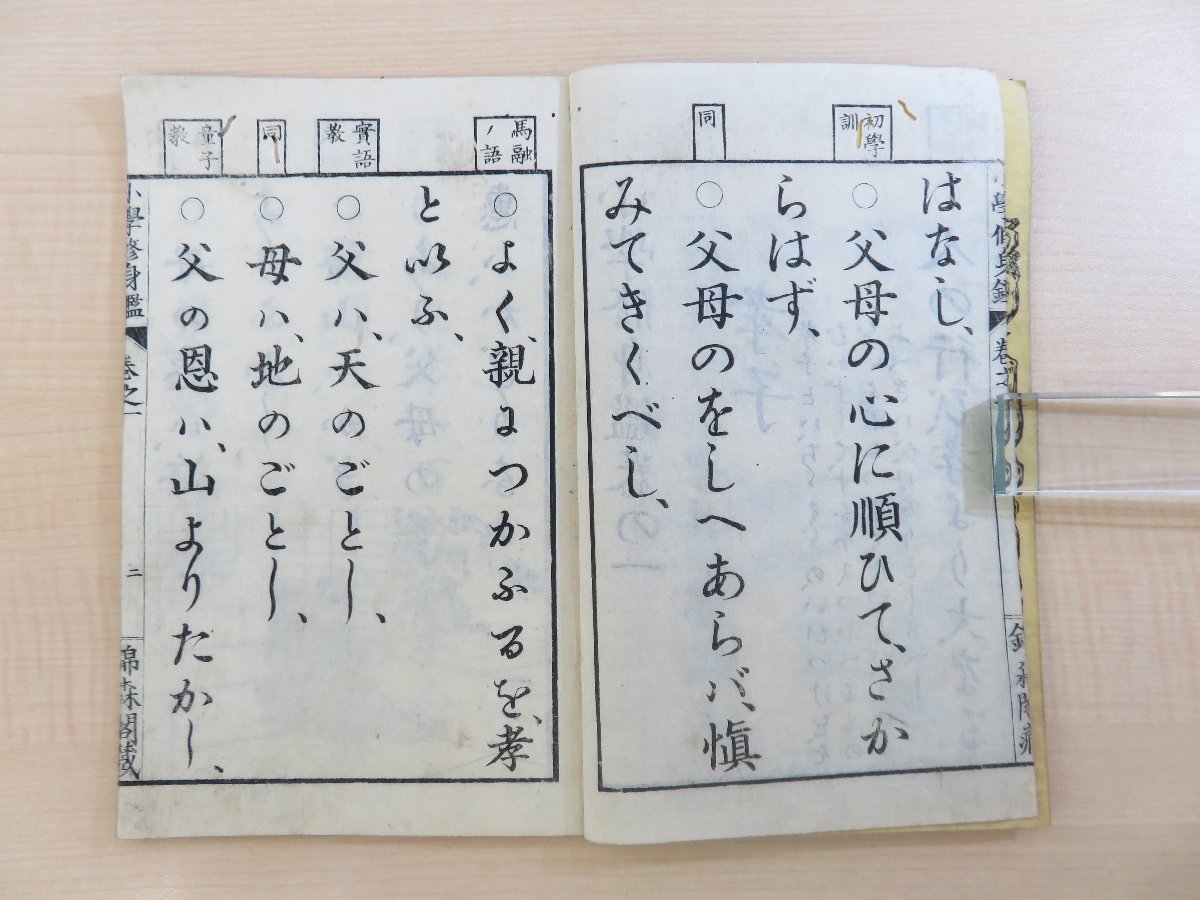 初學訓
同
はなし、
○父母の心に順ひて、さか
らはず、
○父母のをしへあらバ、愼
みてきくべし、
馬融ノ語
實語敎
同
童子敎
○よく、親につかふるを、孝
と以ふ、
○父ハ、天のごとし、
○母ハ、地のごとし、
○父の恩ハ、山よりたかし、
小學修身鑑
卷之一
二
錦森閣藏